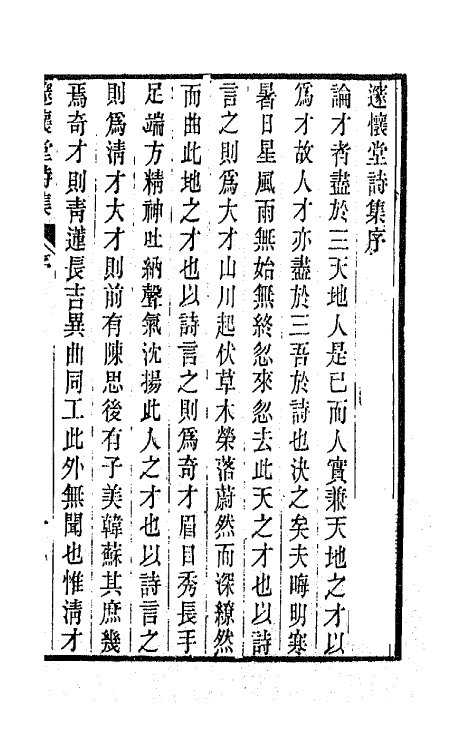 邃懷堂詩集序
論才者盡於三天地人是已而人實兼天地之才以
爲才故人才亦盡於三吾於詩也決之矣夫晦明寒
暑日星風雨無始無終忽來忽去此天之才也以詩
言之則爲大才山川起伏草木榮落蔚然而深繚然
而曲此地之才也以詩言之則爲奇才眉目秀長手
足端方精神吐納聲氣沈揚此人之才也以詩言之
則爲淸才大才則前有陳思後有子美韓蘇其庶幾
焉奇才則靑蓮長吉異曲同工此外無聞也惟淸才
邃懷堂詩集 序